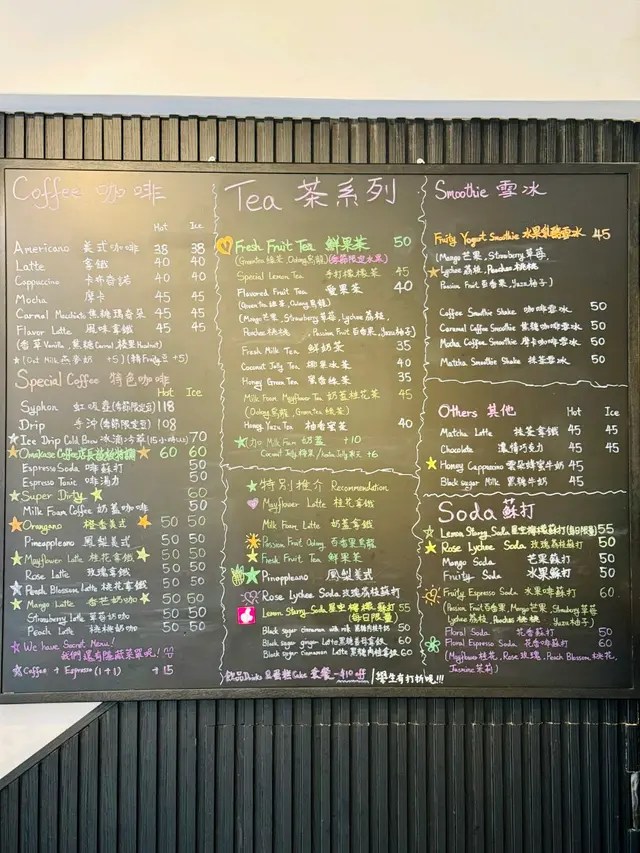 Coffee 咖啡
Hot Ice
Americano 美式咖啡 38 38
Latte 拿鐵 40 40
Cappuccino 卡布奇諾 40 40
Mocha 摩卡 45 45
Carmal Macchiato 焦糖瑪奇朵 45 45
Flavor Latte 風味拿鐵 45 45
(香草Vanilla, 焦糖Carmel, 榛果Hazelnut)
(Oat Milk 燕麥奶 +5)
Special Coffee 特色咖啡
Hot Ice
Syphon (季節限定豆) 118
Drip 手沖 (季節限定豆) 108
Ice Drip Cold Brew 冰滴冷萃 70
Omakase Coffee 60 60
Espresso Soda 啡蘇打 50
Espresso Tonic 啡湯力 50
Super Dirty 60
Milk Foam Coffee 奶蓋咖啡 50
Orangano 橙香美式 50 50
Pineappleano 鳳梨美式 50 50
Mayflower Latte 桂花拿鐵 50 50
Rose Latte 玫瑰拿鐵 50 50
Peach Blossom Latte 桃花拿鐵 50 50
Mango Latte 香芒奶咖 50 50
Strawberry Latte 草莓奶咖 50 50
Peach Latte 桃桃奶咖 50 50
We have Secret Menu!
我們還有隱藏菜單呢!
Coffee + Espresso (1+1) +15
Tea 茶系列
Fresh Fruit Tea 鮮果茶 50
(Greentea 綠茶, Oolong 烏龍) (季節限定水果)
Special Lemon Tea 手打檸檬茶 45
Flavored Fruit Tea 40
(Green tea 綠茶, Oolong 烏龍)
(Mango 芒果, Strawberry 草莓, Lychee 荔枝,
Peaches 桃桃, Passion Fruit 百香果, Yuzu 柚子)
Fresh Milk Tea 鮮奶茶 35
Coconut Jelly Tea 椰果冰茶 40
Honey Green Tea 蜜香綠茶 35
Milk Foam Mayflower Tea 奶蓋桂花茶 45
(Oolong 烏龍, Green tea 綠茶)
Honey Yuzu Tea 柚香蜜茶 40
(加 Milk Foam 奶蓋 +10
Coconut Jelly 椰果 +6
特別推介 Recommendation
Mayflower Latte 桂花拿鐵
Milk Foam Latte 奶蓋拿鐵
Passion Fruit Oolong 百香果烏龍
Fresh Fruit Tea 鮮果茶
Pineappleano 鳳梨美式
Rose Lychee Soda 玫瑰荔枝蘇打
Lemon Starry Soda 星空檸檬蘇打 55
(每日限量)
Black sugar cinnamon with milk 黑糖肉桂牛奶 50
Black sugar ginger Latte 黑糖薑母拿鐵 60
Black sugar cinnamon Latte 黑糖肉桂拿鐵 60
飲品Drinks 蛋糕Cake 套餐 -$10 | 學生有打折呢!!!
Smoothie 雪冰
Fruity Yogurt Smoothie 水果乳酪雪冰 45
(Mango 芒果, Strawberry 草莓,
Lychee 荔枝, Peaches 桃桃
Passion Fruit 百香果, Yuzu 柚子)
Coffee Smoothie Shake 咖啡雪冰 50
Caramel Coffee Smoothie 焦糖咖啡雪冰 50
Mocha Coffee Smoothie 摩卡咖啡雪冰 50
Matcha Smoothie Shake 抹茶雪冰 50
Others 其他 Hot Ice
Matcha Latte 抹茶拿鐵 45 45
Chocolate 濃情巧克力 45 45
Honey Cappuccino 雲朵蜂蜜牛奶 45
Black sugar Milk 黑糖牛奶 45
Soda 蘇打
Lemon Starry Soda 星空檸檬蘇打 (每日限量) 55
Rose Lychee Soda 玫瑰荔枝蘇打 50
Mango Soda 芒果蘇打 50
Fruity Soda 水果蘇打 50
Fruity Espresso Soda 水果咖啡蘇打 60
(Passion Fruit 百香果, Mango 芒果, Strawberry 草莓
Lychee 荔枝, Peaches 桃桃 Yuzu 柚子)
Floral Soda 花香蘇打 50
Floral Espresso Soda 花香咖蘇打 60
(Mayflower 桂花, Rose 玫瑰, Peach Blossom 桃花,
Jasmine 茉莉)